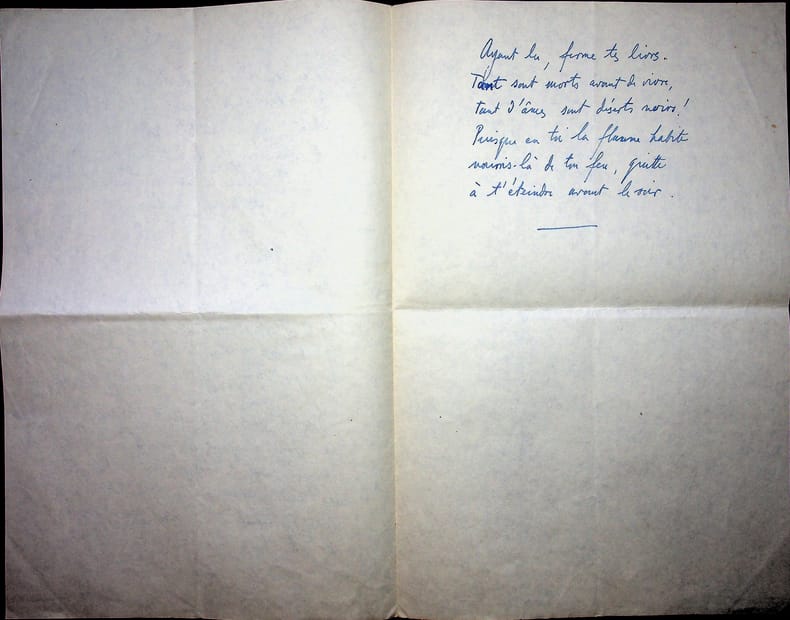 Ayant lu, ferme tes livres.
Tant sont morts avant de vivre,
tant d'âmes sont déserts noirs!
Puisque en toi la flamme habite
nourris-là de ton feu, quitte
à t'éteindre avant le soir.